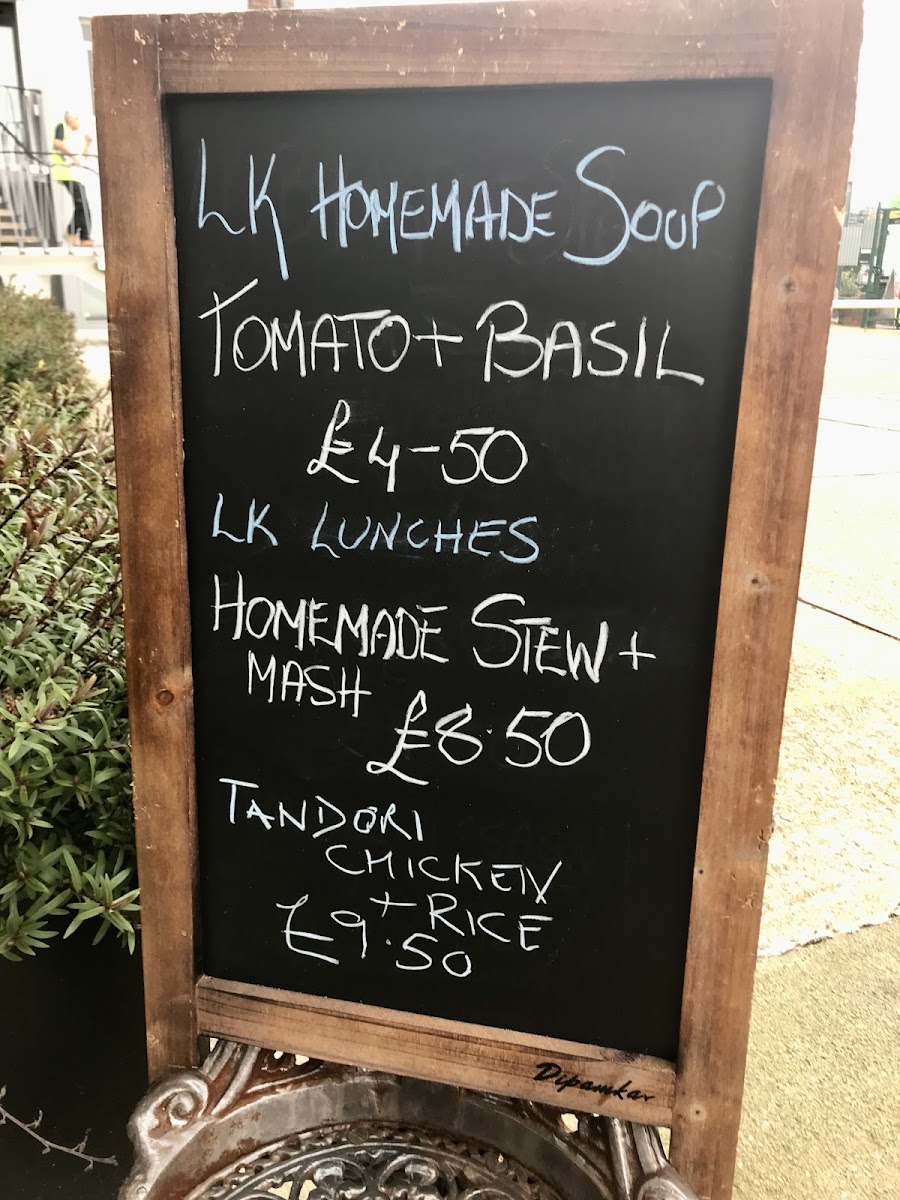 LK HOMEMADE SOUP
TOMATO + BASIL
£4-50
LK LUNCHES
HOMEMADE STEW +
MASH
£8.50
TANDORI
CHICKEN
+ RICE
£9.50
Dipamkar